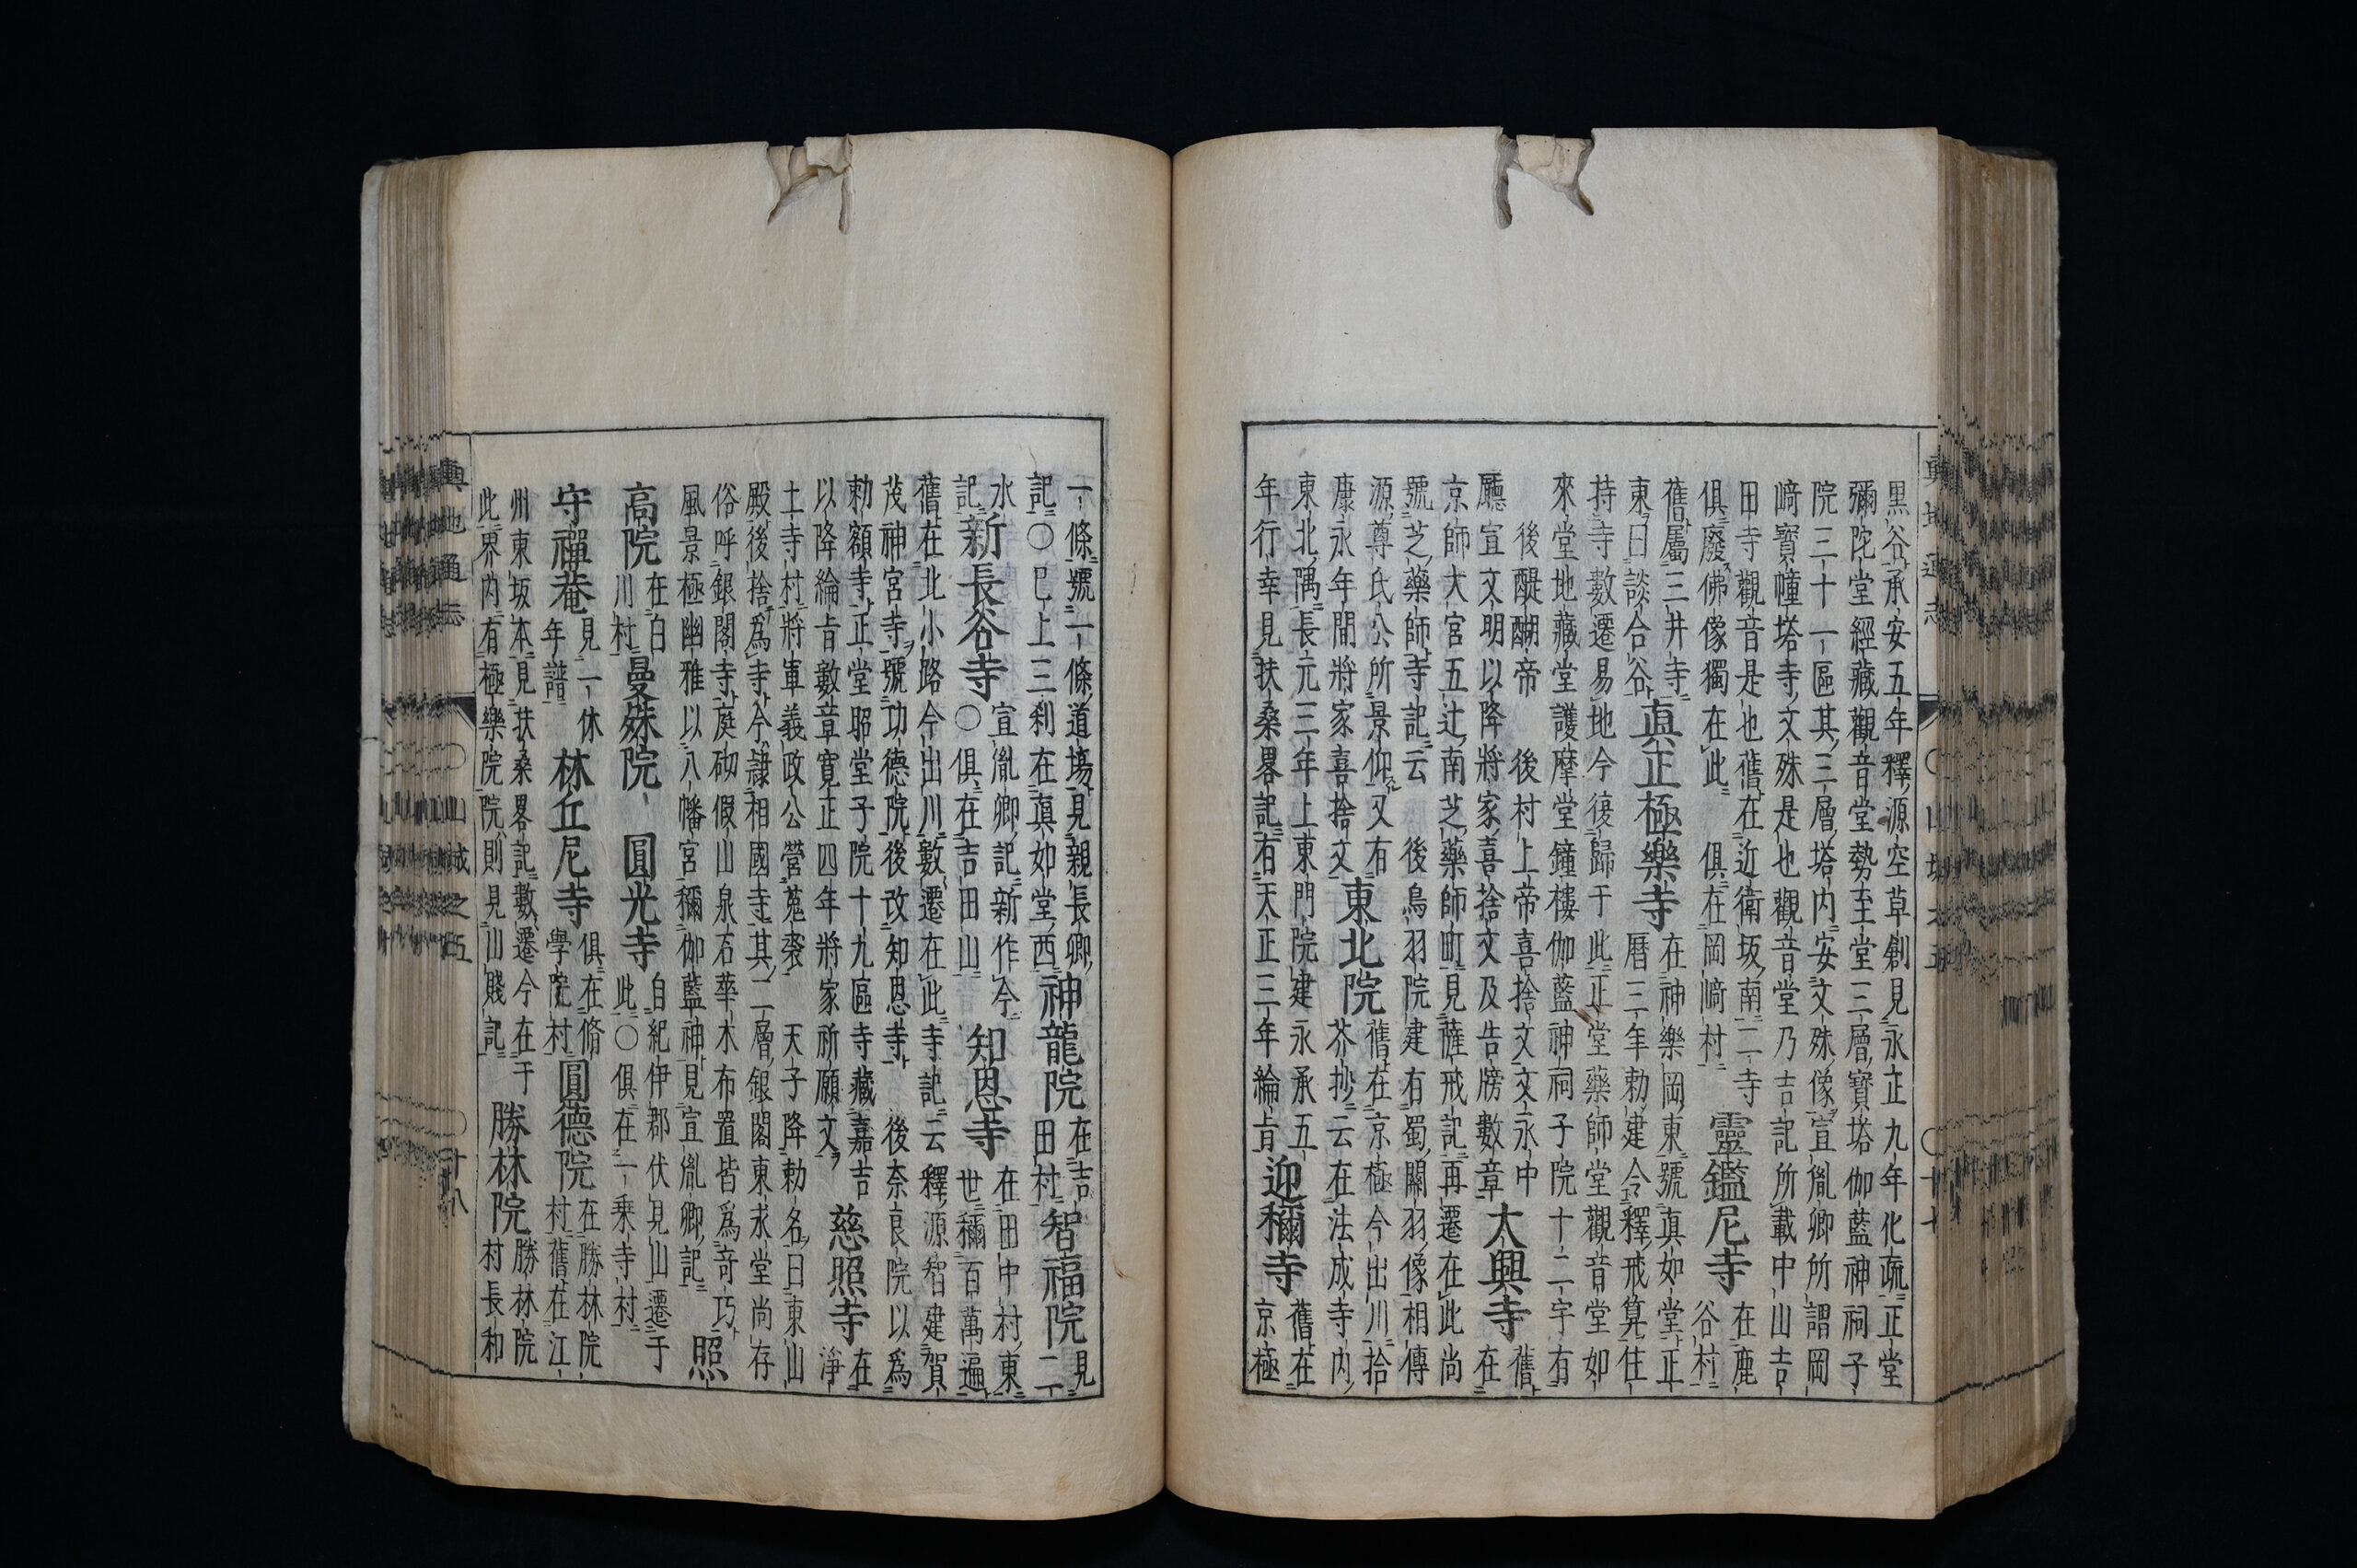 輿地通志
〇山城之五
〇十七
黒谷承安五年釋源空草創見永正九年化疏正堂
彌陀堂經藏觀音堂勢至堂三層寶塔伽藍神祠子
院三十一區其三層塔内安文殊像宣胤卿所謂岡
﨑寶幢塔寺文殊是也觀音堂乃吉記所載中山吉
田寺觀音是也舊在近衛坂南二寺
俱廢佛像獨在此 俱在岡﨑村
靈鑑尼寺
在鹿
谷村
舊屬三井寺
東曰談合谷
眞正極樂寺
在神樂岡東號真如堂正
暦三年勅建令釋戒算住
持寺數遷易地今復歸于此正堂藥師堂觀音堂如
來堂地藏堂護摩堂鐘樓伽藍神祠子院十二宇有
後醍醐帝 後村上帝喜捨文文永中
廳宣文明以降將家喜捨文及告牓數章
太興寺
舊
在
京師大宮五辻南芝藥師町見薩戒記再遷在此尚
號芝藥師寺記云 後鳥羽院建有蜀關羽像相傳
源尊氏公所景仰又有
康永年間將家喜捨文
東北院
舊在京極今出川拾
芥抄云在法成寺内
東北隅長元三年上東門院建永承五
年行幸見扶桑畧記有天正三年綸旨
迎稱寺
舊在
京極
一條號一條道塲見親長卿
記〇已上三刹在真如堂西
神龍院
在吉
田村
智福院
見
二
水
記
新長谷寺
宣胤卿記新作今
〇俱在吉田山
知恩寺
在田中村東
世稱百萬遍
舊在北小路今出川數遷在此寺記云釋源智建賀
茂神宮寺號功德院後改知恩寺 後奈良院以爲
勅額寺正堂昭堂子院十九區寺藏嘉吉
以降綸旨數章寛正四年將家所願文
慈照寺
在
淨
土寺村將軍義政公營菟裘 天子降勅名曰東山
殿後捨爲寺今隷相國寺其二層銀閣東求堂尚存
俗呼銀閣寺庭砌假山泉石華木布置皆爲奇巧
風景極幽雅以八幡宮稱伽藍神見宣胤卿記
照
高院
在白
川村
曼殊院
圓光寺
自紀伊郡伏見山遷于
此〇俱在一乗寺村
守禪菴
見一休
年譜
林丘尼寺
俱在脩
學院村
圓德院
在勝林院
村舊在江
州東坂本見扶桑畧記數遷今在于
此界内有極樂院院則見山賤記
勝林院
勝林院
村長和
輿地通志
〇山城之五
〇十八